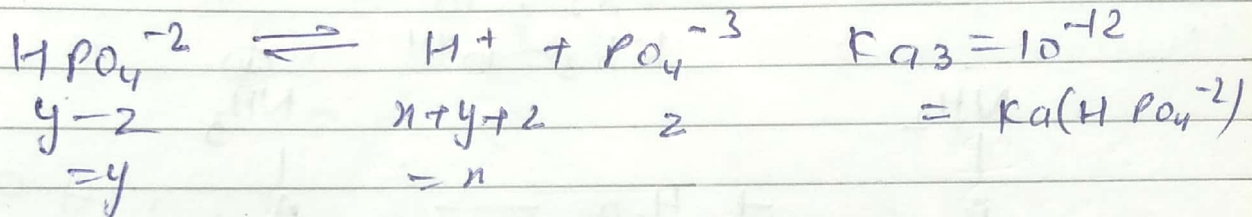 HPO₄⁻² ⇌ H⁺ + PO₄⁻³ Ka₃ = 10⁻¹²
y-z x+y+z z = Ka(HPO₄⁻²)
=y =x